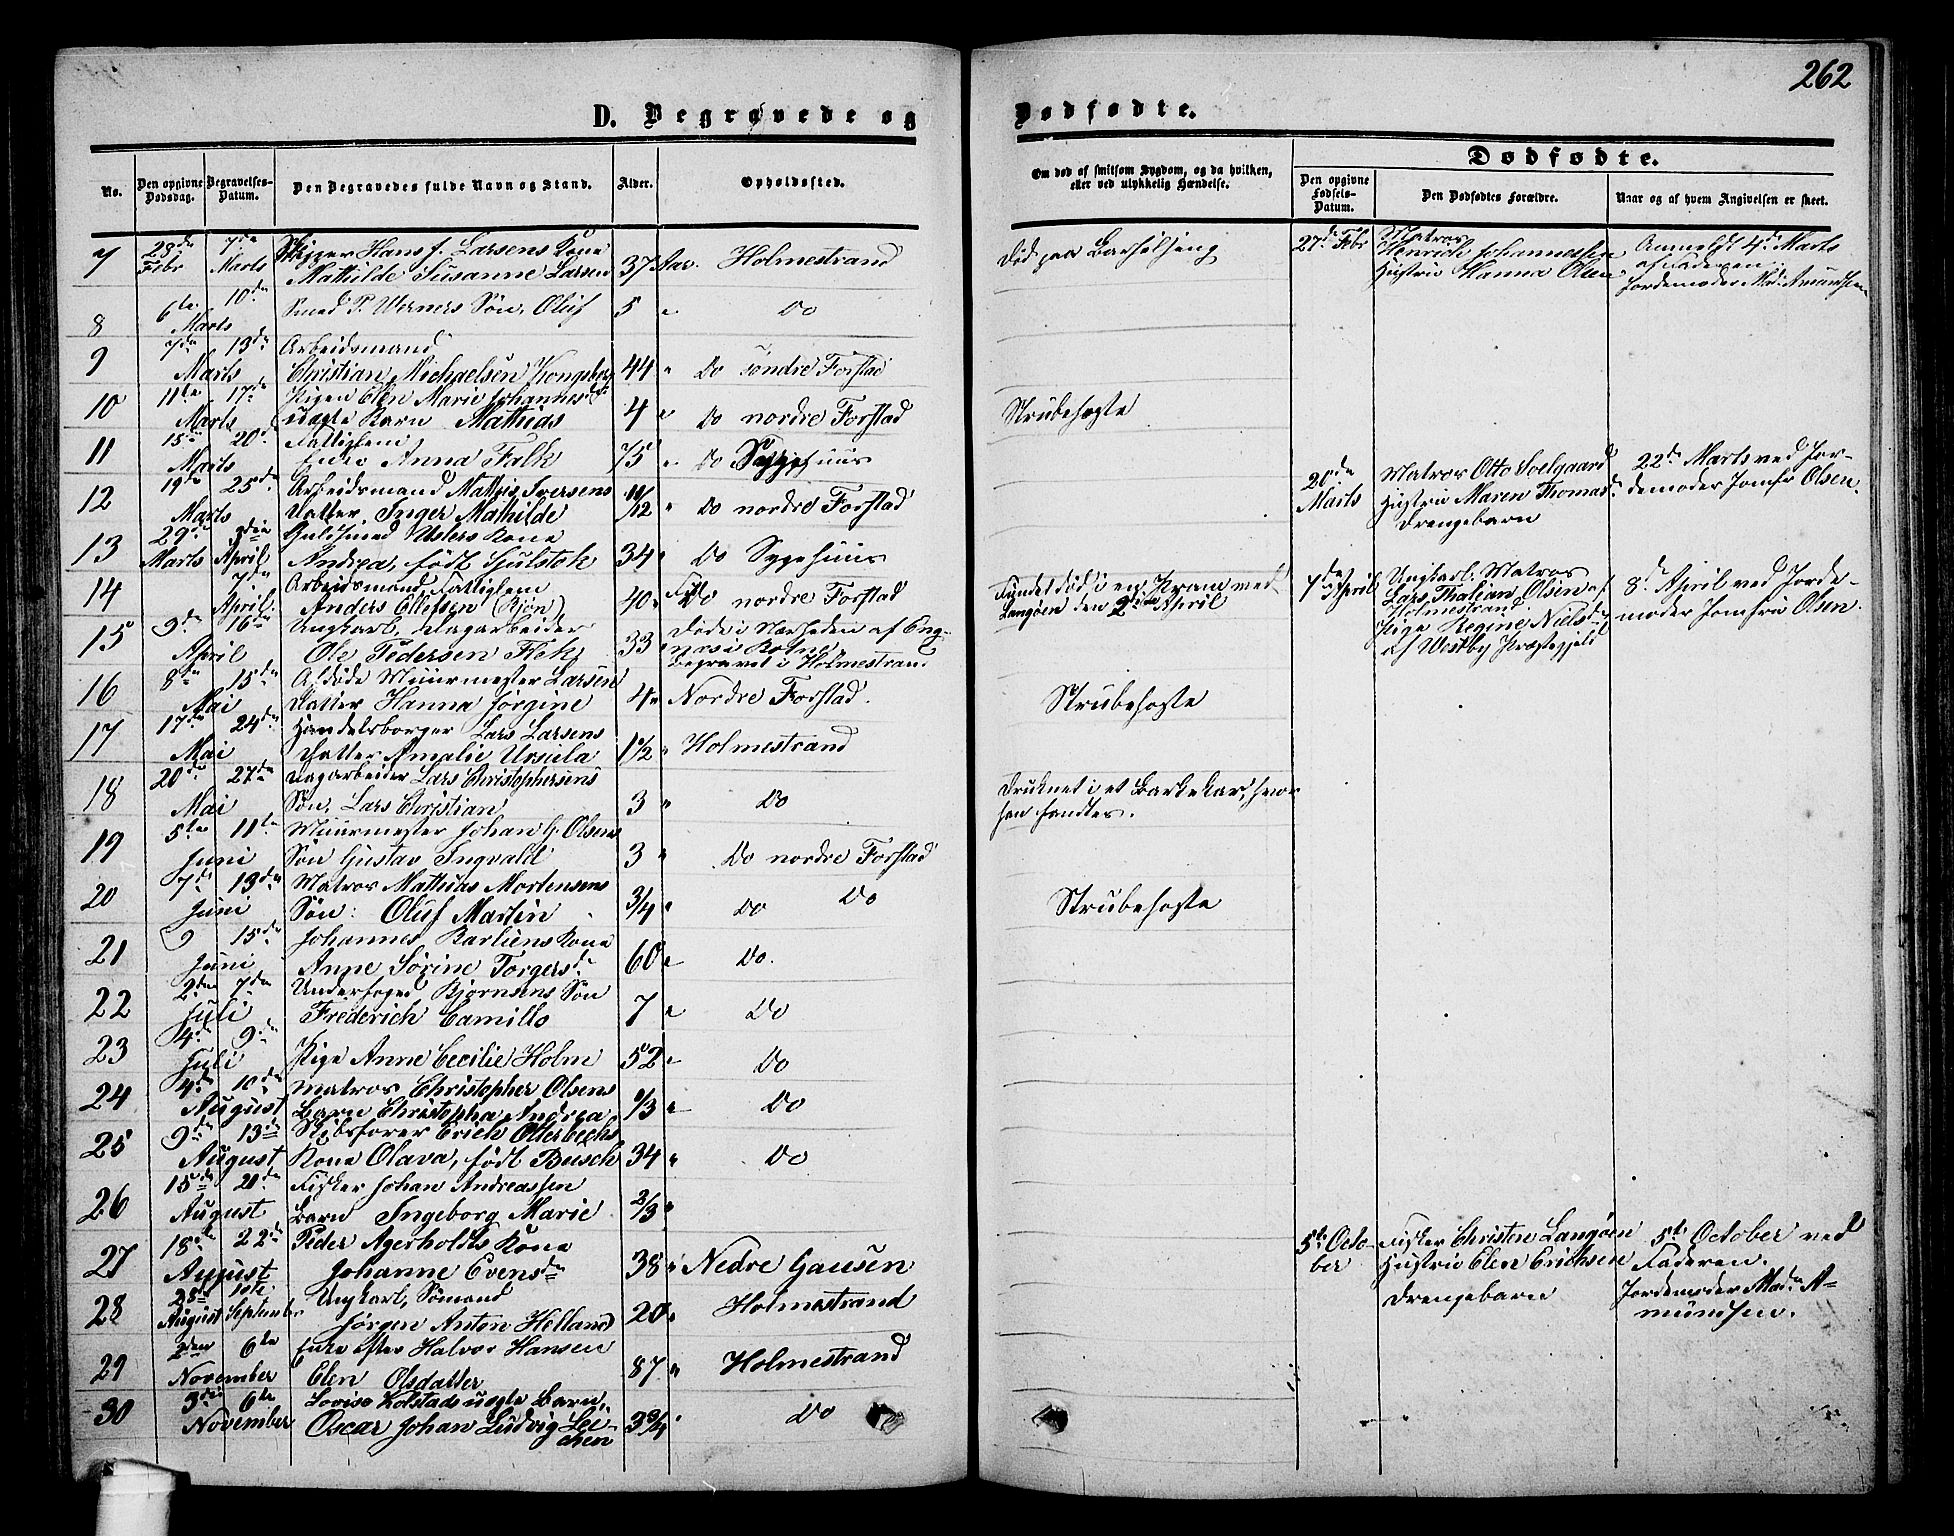 262
D. Begrøvede og Dødfødte.
No. Den opgivne Dødsdag. Begravelses-Datum. Den Begravedes fulde Navn og Stand. Alder. Opholdssted. Om død af smitsom Sygdom, og da hvilken, eller ved ulykkelig Hændelse.
Dødfødte.
Den opgivne Fødsels-Datum. Den Dødfødtes Forældre. Naar og af hvem Angivelsen er skeet.
7 28de Febr 7de Marts Skipper Hans J. Larsens Kone
Mathilde Susanne Larsen 37 Aar. Holmestrand Død paa Barselseng
27de Febr Matros
Henrich Johannessen
Hustru Hanna Olsen
Anmeldt 4de Marts
af Faderen
Jordemoder Mad: Amundsen
8 6te Marts 10de Smed P. Werners Søn, Oluf 5 " Do
9 7de Marts 13de Arbeidsmand
Christian Michaelsen Kongsberg 44 " Do søndre Forstad
10 11te Marts 17de Pigen Elen Marie Johannesd.
uægte Barn Mathias 4 " Do nordre Forstad Strubehoste
11 15de Marts 20de Fattiglem
Enke Anna Falk 75 " Do Sygehuus
12 19de Marts 25de Arbeidsmand Mathis Iversens
Datter, Inger Mathilde 11/12 " Do nordre Forstad
20de Marts Matros Otto Soelgaard
Hustru Maren Thomasd.
Drengebarn
22de Marts ved Jor-
demoder Jomfr Olsen.
13 29de Marts 3die April Guldsmed Usters Kone
Andrea, født Gulstok 34 " Do Sygehuus
14 7de April. Arbeidsmand, Fattiglem
Anders Ellefsen (Bjøn) 40 " Do nordre Forstad Fundet død i en Kram ved
Langøen den 2den April
7de April Ungkarl. Matros
Lars Thalian Olsen af
Holmestrand.
Pige Regine Nielsd.
af Westby Præstegjeld
8de April ved Jorde-
moder Jomfru Olsen.
15 9de April 16de Ungkarl, Dagarbeider
Ole Pedersen Flek 33 Døde i Nærheden af Eng-
nes i Botne,
begravet i Holmestrand
16 8de Mai 15de Afdøde Muurmester Larsens
Datter Hanna Jørgine 4 " Nordre Forstad. Strubehoste
17 17de Mai 24de Handelsborger Lars Larsens
Datter Amalie Ursula 1 1/2 " Holmestrand
18 20de Mai 27de Dagarbeider Lars Christophersens
Søn, Lars Christian 3 " Do Druknet i et Barkekar, hvor
han fandtes.
19 5te Juni 11te Muurmester Johan G. Olsens
Søn Gustav Ingvald 3 " Do nordre Forstad
20 7de Juni 13de Matros Mathias Mortensens
Søn: Oluf Martin 3/4 " Do Do Strubehoste
21 9 Juni 15de Johannes Karliens Kone
Anne Sørine Torgersd. 60 " Do.
22 2den Juli 7de Underfoged Bjørnsens Søn
Frederich Camillo 7 " Do
23 4de Juli 9de Pige Anne Cecilie Holm 52 " Do
24 4de August 10de Matros Christopher Olsens
Barn Christopha Andrea 1/3 " Do
25 9de August 13de Skibsfører Erich Otterbechs
Kone Olava, født Busch 34 " Do
26 15de August 20de Fisker Johan Andreassen
Barn Ingeborg Marie 2/3 "
27 18de August 22de Peder Agerholdts Kone
Johanne Evensd. 38 " Nedre Gausen
5te October Fisker Christen Langøen
Hustru Elen Erichsen
Drengebarn
5te October ved
Faderen.
Jordemoder Mad. A-
mundsen.
28 28de August 1ste September Ungkarl, Sømand
Jørgen Anton Helland 20 " Holmestrand
29 2den November 6te Enke efter Halvor Hansen
Elen Olsdatter 87 " Holmestrand
30 3die November 6te Lovise Kolstads uægte Barn,
Oscar Johan Ludvig 3 3/4 " Do